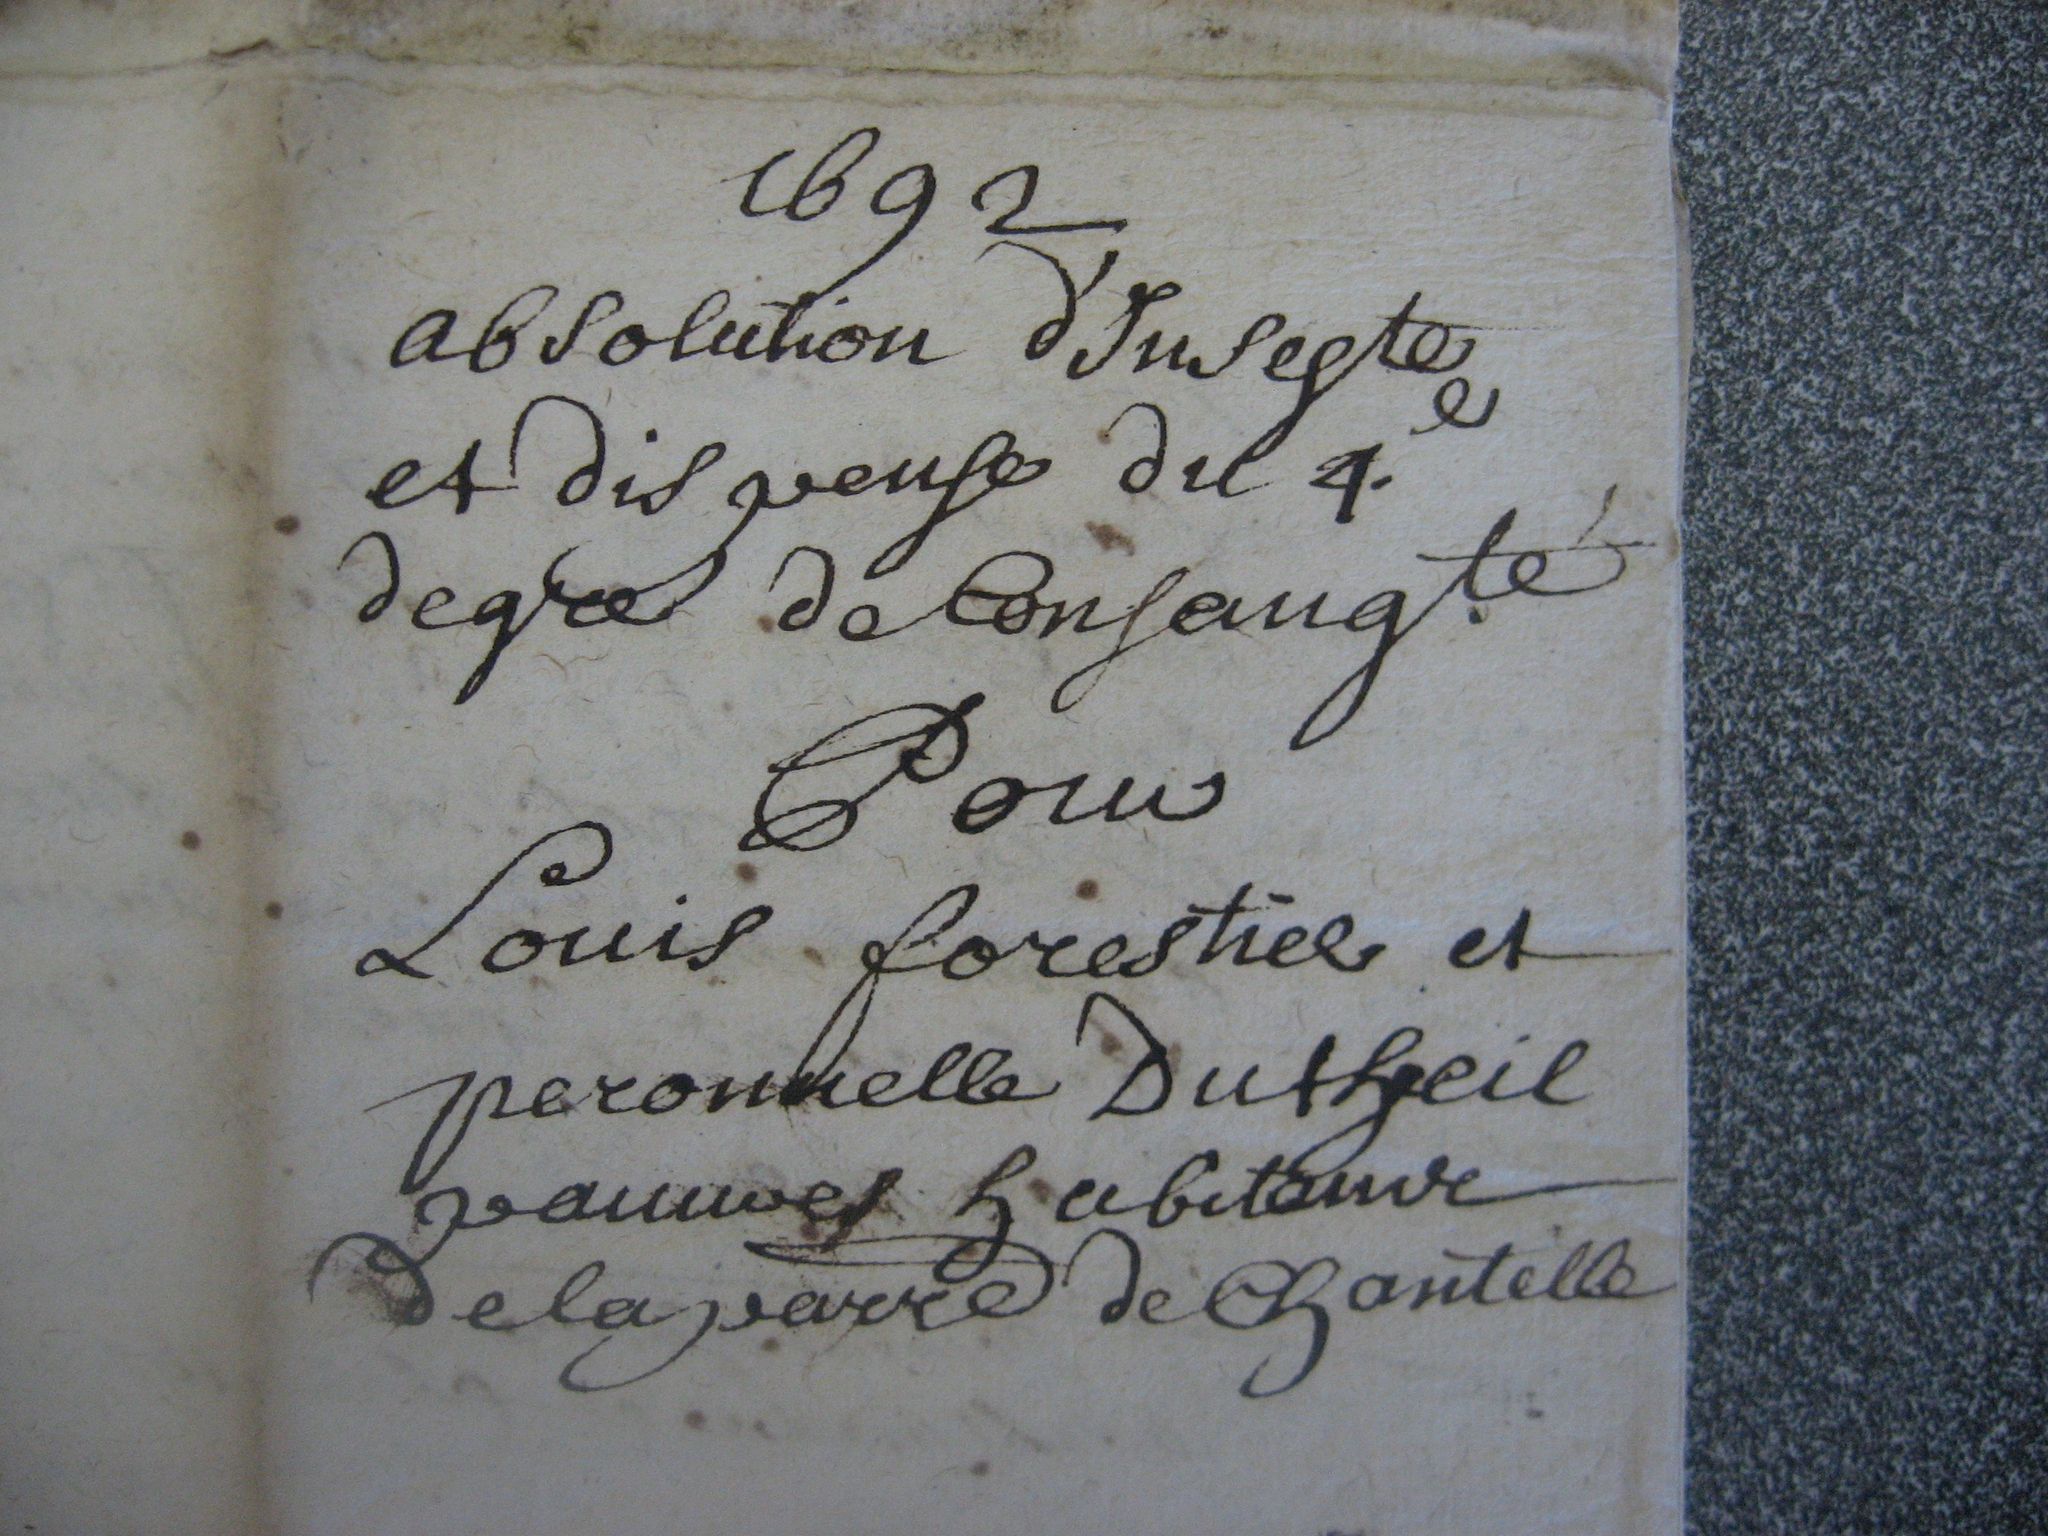 1692
absolution d'Insegte
et dispense du 4.e
degré de Consangté
Pour
Louis forestier et
peronnelle Dutheil
pauuves habitans
de la parre de Chantelle